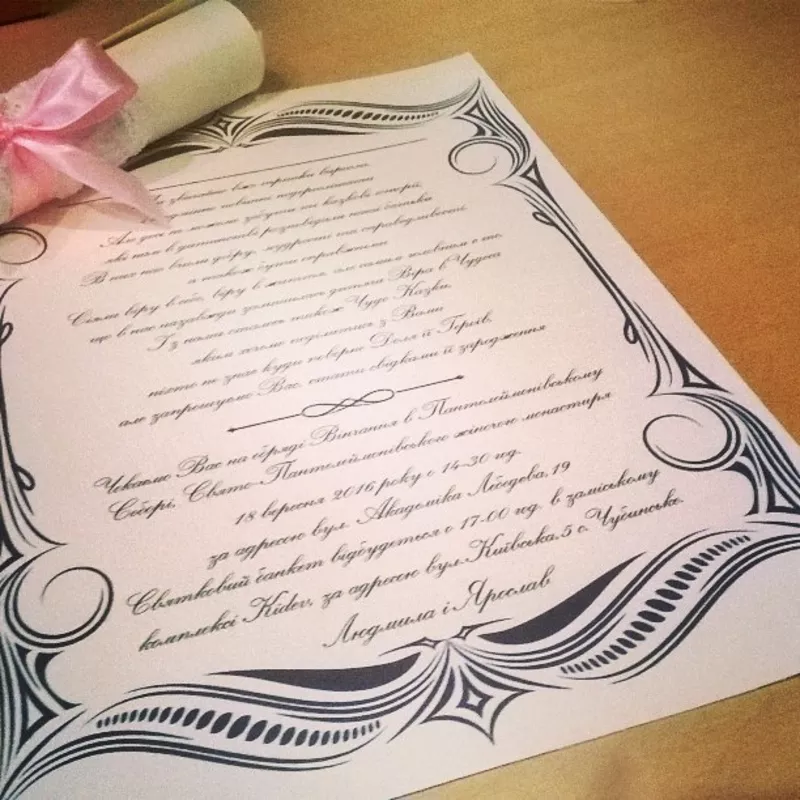 зважайте вже трохи виросли
Але досі не можемо забути ті казкові історії,
які нам в дитинстві розповідали наші батьки
В них нас вчили добру, мудрості та справедливості
а також бути справжніми
Сіяли віру в себе, віру в життя, але саме головним є те,
що в нас назавжди залишилась дитяча Віра в Чудеса
І з нами сталась також Чудо Казка,
якою хочемо поділитись з Вами
ніхто не знає куди поверне Доля її Героїв,
але запрошуємо Вас, стати свідками її зародження
Чекаємо Вас на обряді Вінчання в Пантелеймонівському
Соборі, Свято-Пантелеймонівського жіночого монастиря
18 вересня 2016 року о 14-30 год.
за адресою вул. Академіка Лебедєва,19
Святковий банкет відбудеться о 17-00 год. в заміському
комплексі Kidev, за адресою вул.Київська,5 с. Чубинське.
Людмила і Ярослав